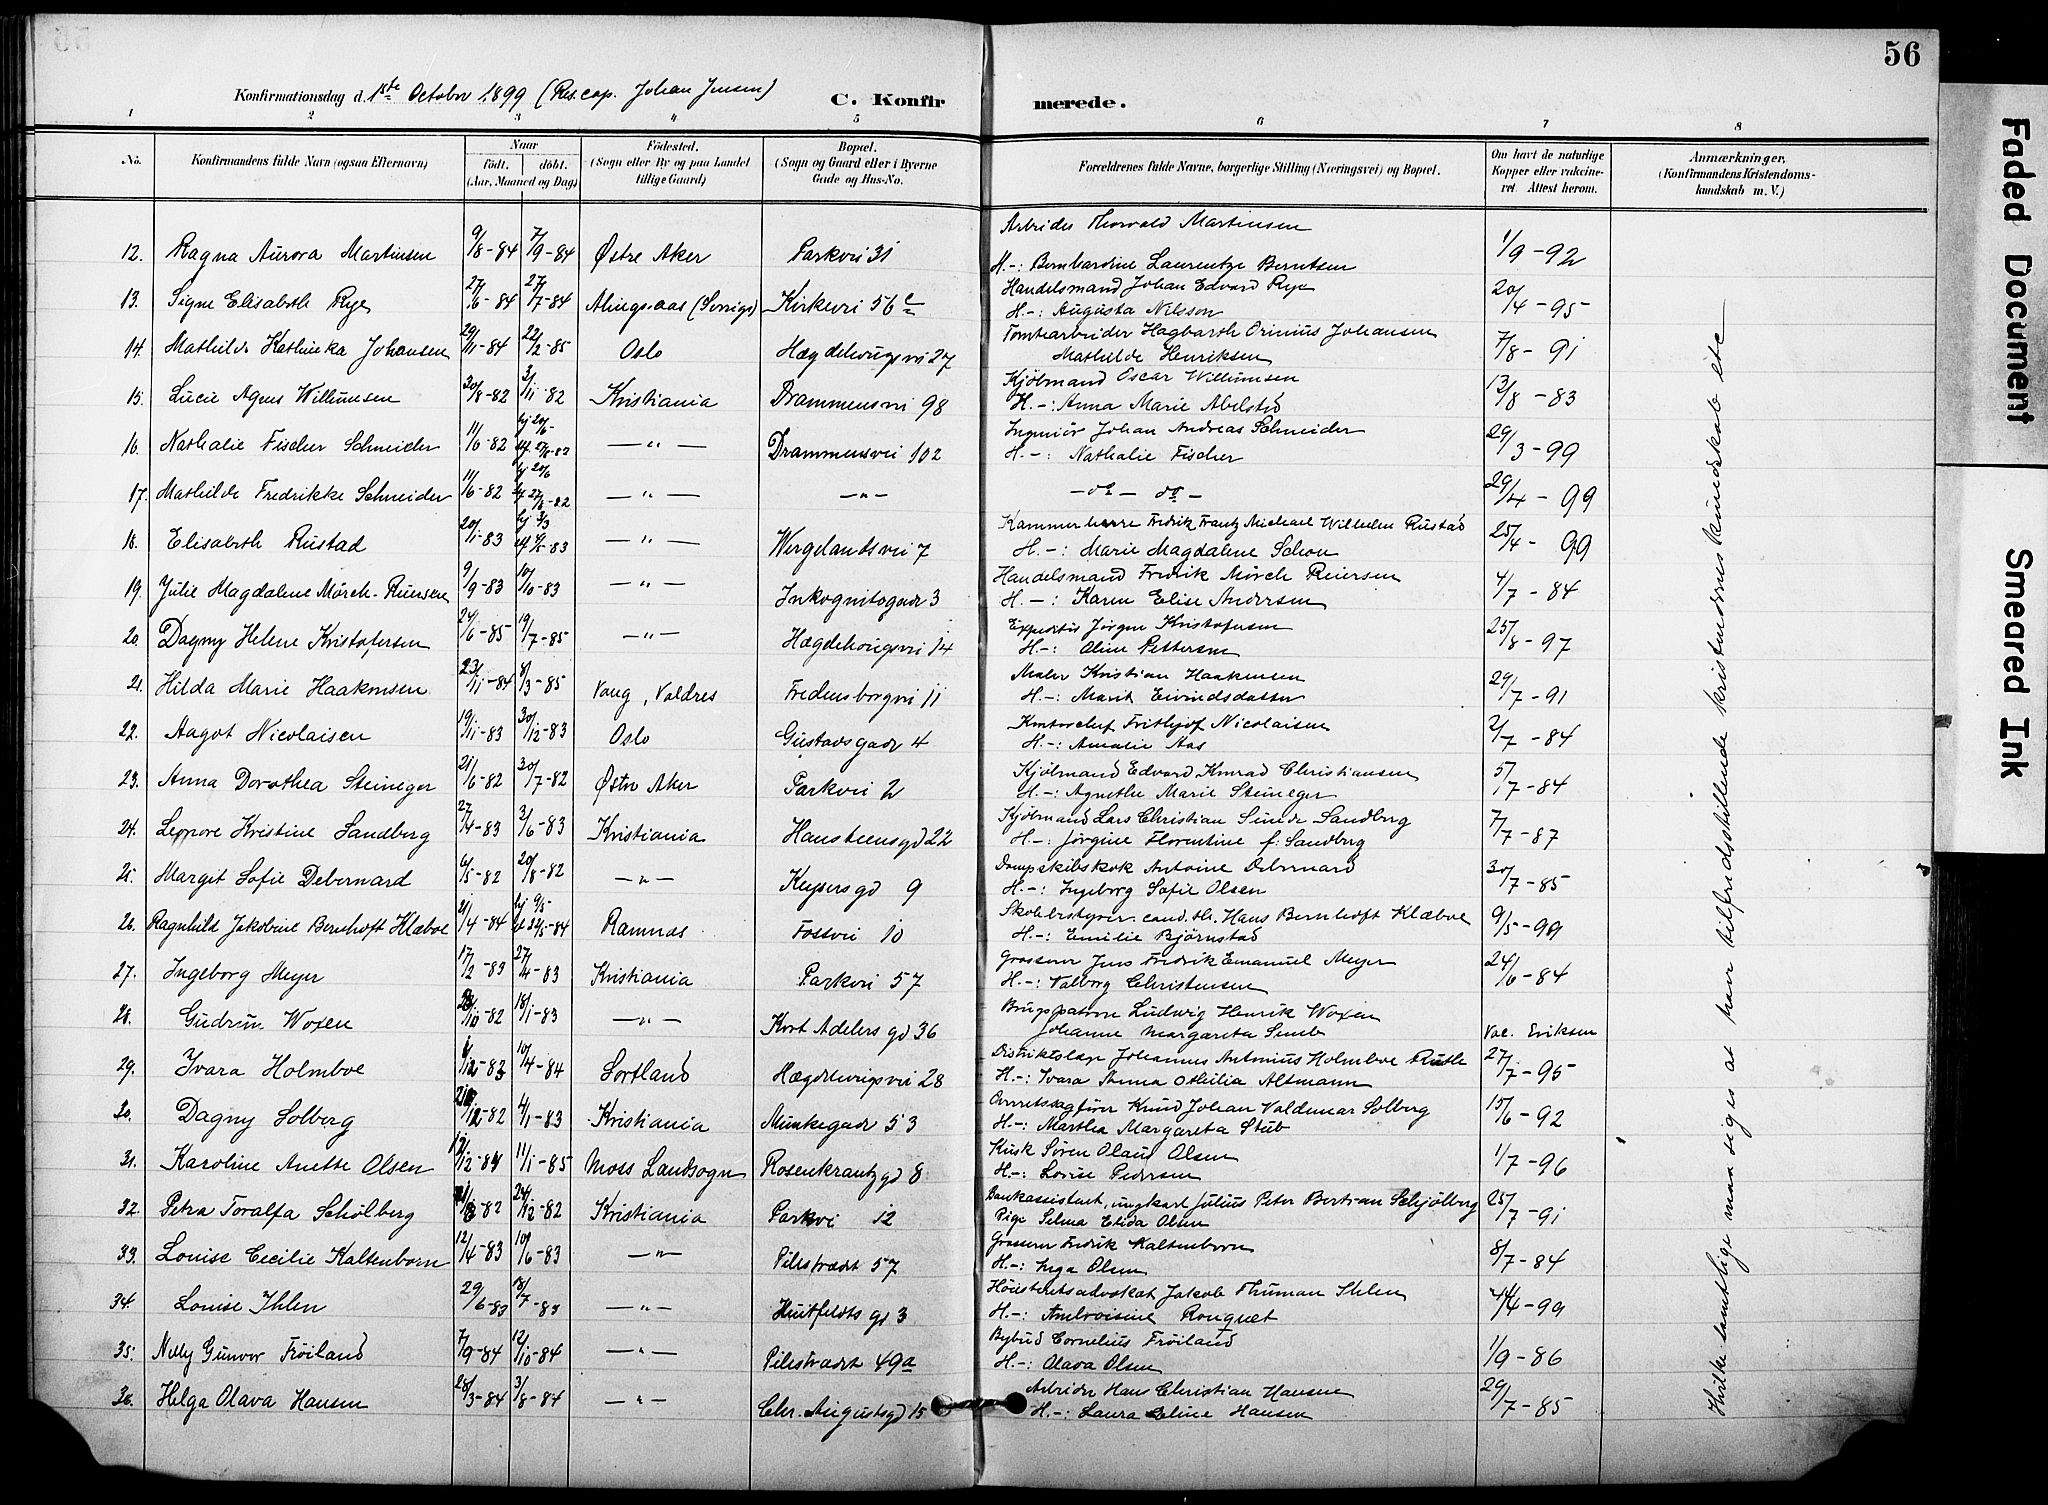 56
Konfirmationsdag d. 1ste October 1899 (Res. cap. Johan Jensen) C. Konfirmerede.
1 2 3 4 5 6 7 8
No. Konfirmandens fulde Navn (ogsaa Efternavn) Naar født. døbt. (Aar, Maaned og Dag) Fødested. (Sogn eller By og paa Landet tillige Gaard) Bopæl. (Sogn og Gaard eller i Byerne Gade og Hus-No. Forældrenes fulde Navne, borgerlige Stilling (Næringsvei) og Bopæl. Om havt de naturlige Kopper eller vakcineret. Attest herom. Anmærkninger, (Konfirmandens Kristendomskundskab m. V.)
Arbeider Thorvald Martinsen
12. Ragna Aurora Martinsen 9/8-84 7/9-84 Østre Aker Parkvei 31 H.-: Bernhardine Laurentze Berntsen 1/9-92
13. Signe Elisabeth Rye 27/6-84 27/7-84 Alingsaas (Sverige) Kirkevei 56c Handelsmand Johan Edvard Rye 20/4-95
H.-: Augusta Nilsson
14. Mathilde Kathinka Johansen 29/11-84 22/2-85 Oslo Hægdehougsvei 27 Tomtearbeider Hagbarth Orinius Johansen 7/8-91
Mathilde Henriksen
15. Lucie Agnes Willumsen 30/8-82 3/11-82 Kristiania Drammensvei 98 Kjøbmand Oscar Willumsen 13/8-83
H.-: Anna Marie Abelsted
16. Nathalie Fischer Schneider 11/6-82 -"- Drammensvei 102 Ingeniør Johan Andreas Schneider 29/3-99
H.-: Nathalie Fischer
17. Mathilde Fredrikke Schneider 11/6-82 -"- -"- -do- do- 29/4-99
18. Elisabeth Rustad 20/1-83 -"- Wergelandsvei 7 Kammerherre Fredrik Frantz Michael Wilhelm Rustad 25/4-99
H.-: Marie Magdalene Schou
19. Julie Magdalene Mörch-Reiersen 9/9-83 10/10-83 -"- Inkognitogade 3 Handelsmand Fredrik Mörch Reiersen 4/7-84
H.-: Karen Elise Andersen
20. Dagny Helene Kristofersen 24/6-85 19/7-85 -"- Hægdehougsvei 14 Expeditør Jørgen Kristofersen 25/8-97
H.-: Oline Pettersen
21. Hilda Marie Haakensen 23/11-84 8/3-85 Vang, Valdres Fredensborgvei 11 Maler Kristian Haakensen 29/7-91
H.-: Marit Eivindsdatter
22. Aagot Nicolaisen 19/11-83 30/12-83 Oslo Gustavsgade 4 Kontorchef Frithjof Nicolaisen 2/7-84
H.-: Amalie Aas
23. Anna Dorothea Steineger 21/6-82 30/7-82 Østre Aker Parkvei 2 Kjøbmand Edvard Konrad Christiansen 5/7-84
H.-: Agnethe Marie Steineger
24. Leonore Kristine Sandberg 27/4-83 3/6-83 Kristiania Hansteensgd 22 Kjøbmand Lars Christian Sinde Sandberg 7/7-87
H.-: Jørgine Florentine f. Sandberg
25. Margit Sofie Debernard 6/5-82 20/8-82 -"- Keysersgd 9 Dampskibskok Antoine Debernard 30/7-85
H.-: Ingeborg Sofie Olsen
26. Ragnhild Jakobine Bernhoft Klæboe 21/4-84 Ramnæs Fossvei 10 Skolebestyrer cand. th. Hans Bernhoft Klæboe 9/5-99
H.-: Emilie Bjørnstad
27. Ingeborg Meyer 17/2-83 27/4-83 Kristiania Parkvei 57 Grosserer Jens Fredrik Emanuel Meyer 24/6-84
H.-: Valborg Christensen
28. Gudrun Woxen 18/1-83 -"- Kort Adelers gd 36 Brugspatron Ludwig Henrik Woxen Vac. Eriksen
Johanne Margareta Semb
29. Ivara Holmboe 10/4-84 Sortland Hægdehougsvei 28 Distriktslæge Johannes Antonius Holmboe Rutle 27/7-95
H.-: Ivara Anna Othilia Altmann
30. Dagny Solberg 4/1-83 Kristiania Munkegade 53 Overretssagfører Knud Johan Valdemar Solberg 15/6-92
H.-: Martha Margareta Stub
31. Karoline Anette Olsen 11/1-85 Moss Landsogn Rosenkrantzgd 8 Kusk Søren Olaus Olsen 1/7-96
H.-: Lovise Pedersen
32. Petra Toralfa Schölberg 24/12-82 Kristiania Parkvei 12 Bankassistent, ungkarl Julius Peter Bertran Schjölberg 25/7-91
Pige Selma Elida Olsen
33. Louise Cecilie Kaltenborn 12/4-83 10/6-83 -"- Pilestrædet 57 Grosserer Fredrik Kaltenborn 8/7-84
H.-: Inga Olsen
34. Louise Ihlen 29/6-83 18/7-83 -"- Huitfeldts gd 3 Höiesteretsadvokat Jakob Thurman Ihlen 4/4-99
H.-: Ambroisine Rouquet
35. Nelly Gunvor Fröiland 7/9-84 12/10-84 -"- Pilestrædet 49a Bybud Cornelius Fröiland 1/9-86
H.-: Olava Olsen
36. Helga Olava Hansen 28/3-84 3/8-84 -"- Chr. Augustsgd 15 Arbeider Hans Christian Hansen 29/7-85
H.-: Laura Eline Hansen
Hvilke samtlige maa siges at have tilfredsstillende kristendomskundskab etc
Faded Document
Smeared Ink